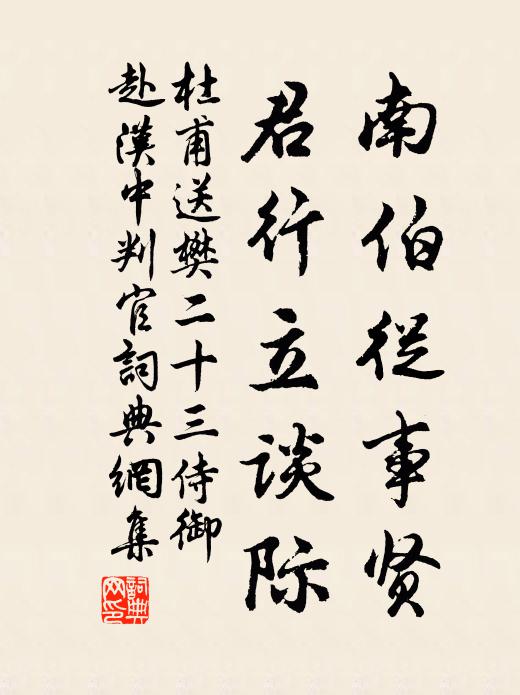 南伯從事贤
君行立谈际
杜甫送樊二十三侍御
赴漢中判官詞典網集
詞典
网印